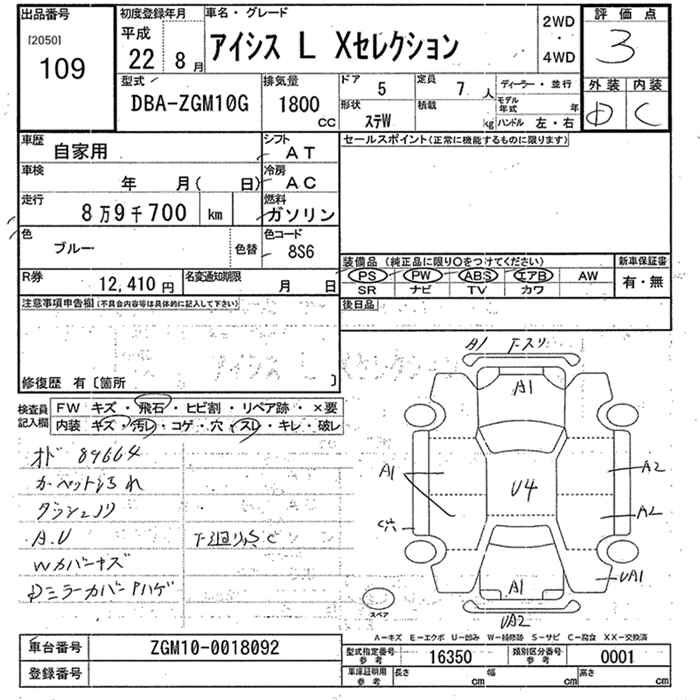 出品番号
[2050]
109
初度登録年月
平成
22 8 月
車名・グレード
アイシス L Xセレクション
2WD
・
4WD
評価点
3
外装 内装
D C
型式
DBA-ZGM10G
排気量
1800
CC
ドア 5
形状 ステW
定員 7 人
積載 kg
ディーラー・並行
モデル年式 年
ハンドル 左・右
車歴
自家用
シフト
AT
車検
年 月( 日)
冷房
AC
走行
8万9千700 km
燃料
ガソリン
色
ブルー
色替
色コード
8S6
R券
12,410 円
名変通知期限
月 日
セールスポイント(正常に機能するものに限ります)
装備品 (純正品に限り○をつけてください)
PS PW ABS エアB AW
SR ナビ TV カワ
新車保証書
有・無
後日品
注意事項申告欄(不具合内容等は具体的に記入して下さい)
修復歴 有〔箇所 〕
検査員記入欄
FW キズ・飛石・ヒビ割・リペア跡・×要
内装 キズ・汚レ・コゲ・穴・スレ・キレ・破レ
オド 89664
A.U
A1
A1
A1
U4
A2
C穴
A1
UA1
UA2
スペア
A-キズ E-エクボ U-凹み W-補修跡 S-サビ C-腐食 XX-交換済
車台番号
ZGM10-0018092
登録番号
型式指定番号 参考
16350
類別区分番号 参考
0001
車庫証明用 参考
長さ cm
幅 cm
高さ cm